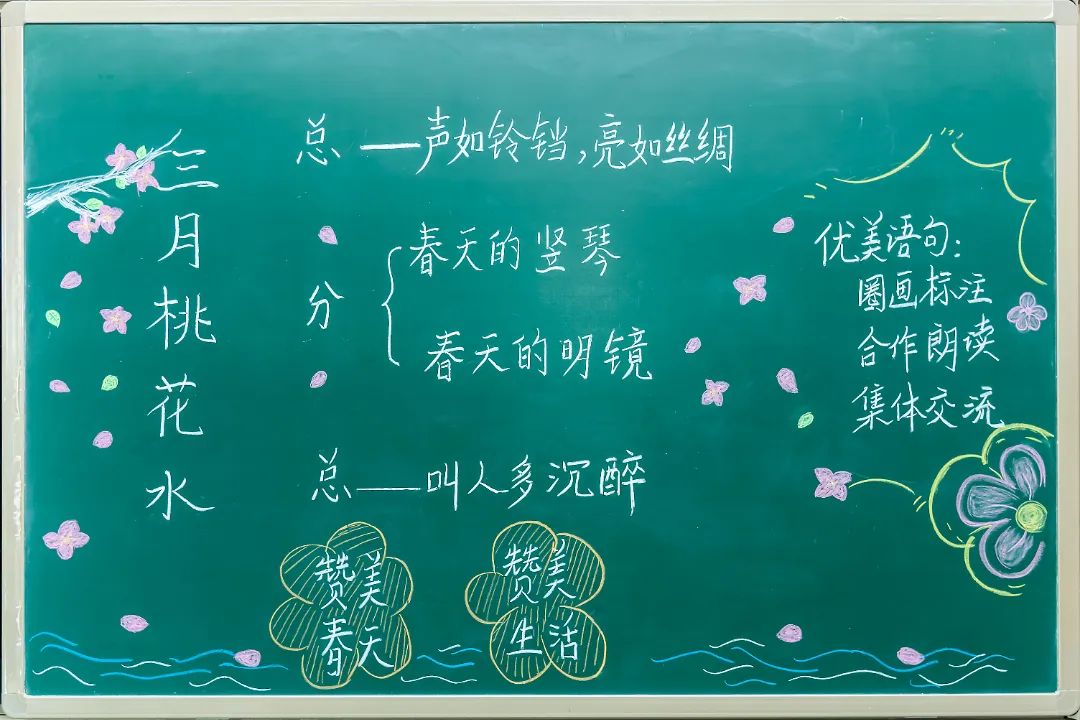 三月桃花水
总——声如铃铛,亮如丝绸
分
春天的竖琴
春天的明镜
总——叫人多沉醉
赞美
春天
赞美
生活
优美语句:
圈画标注
合作朗读
集体交流